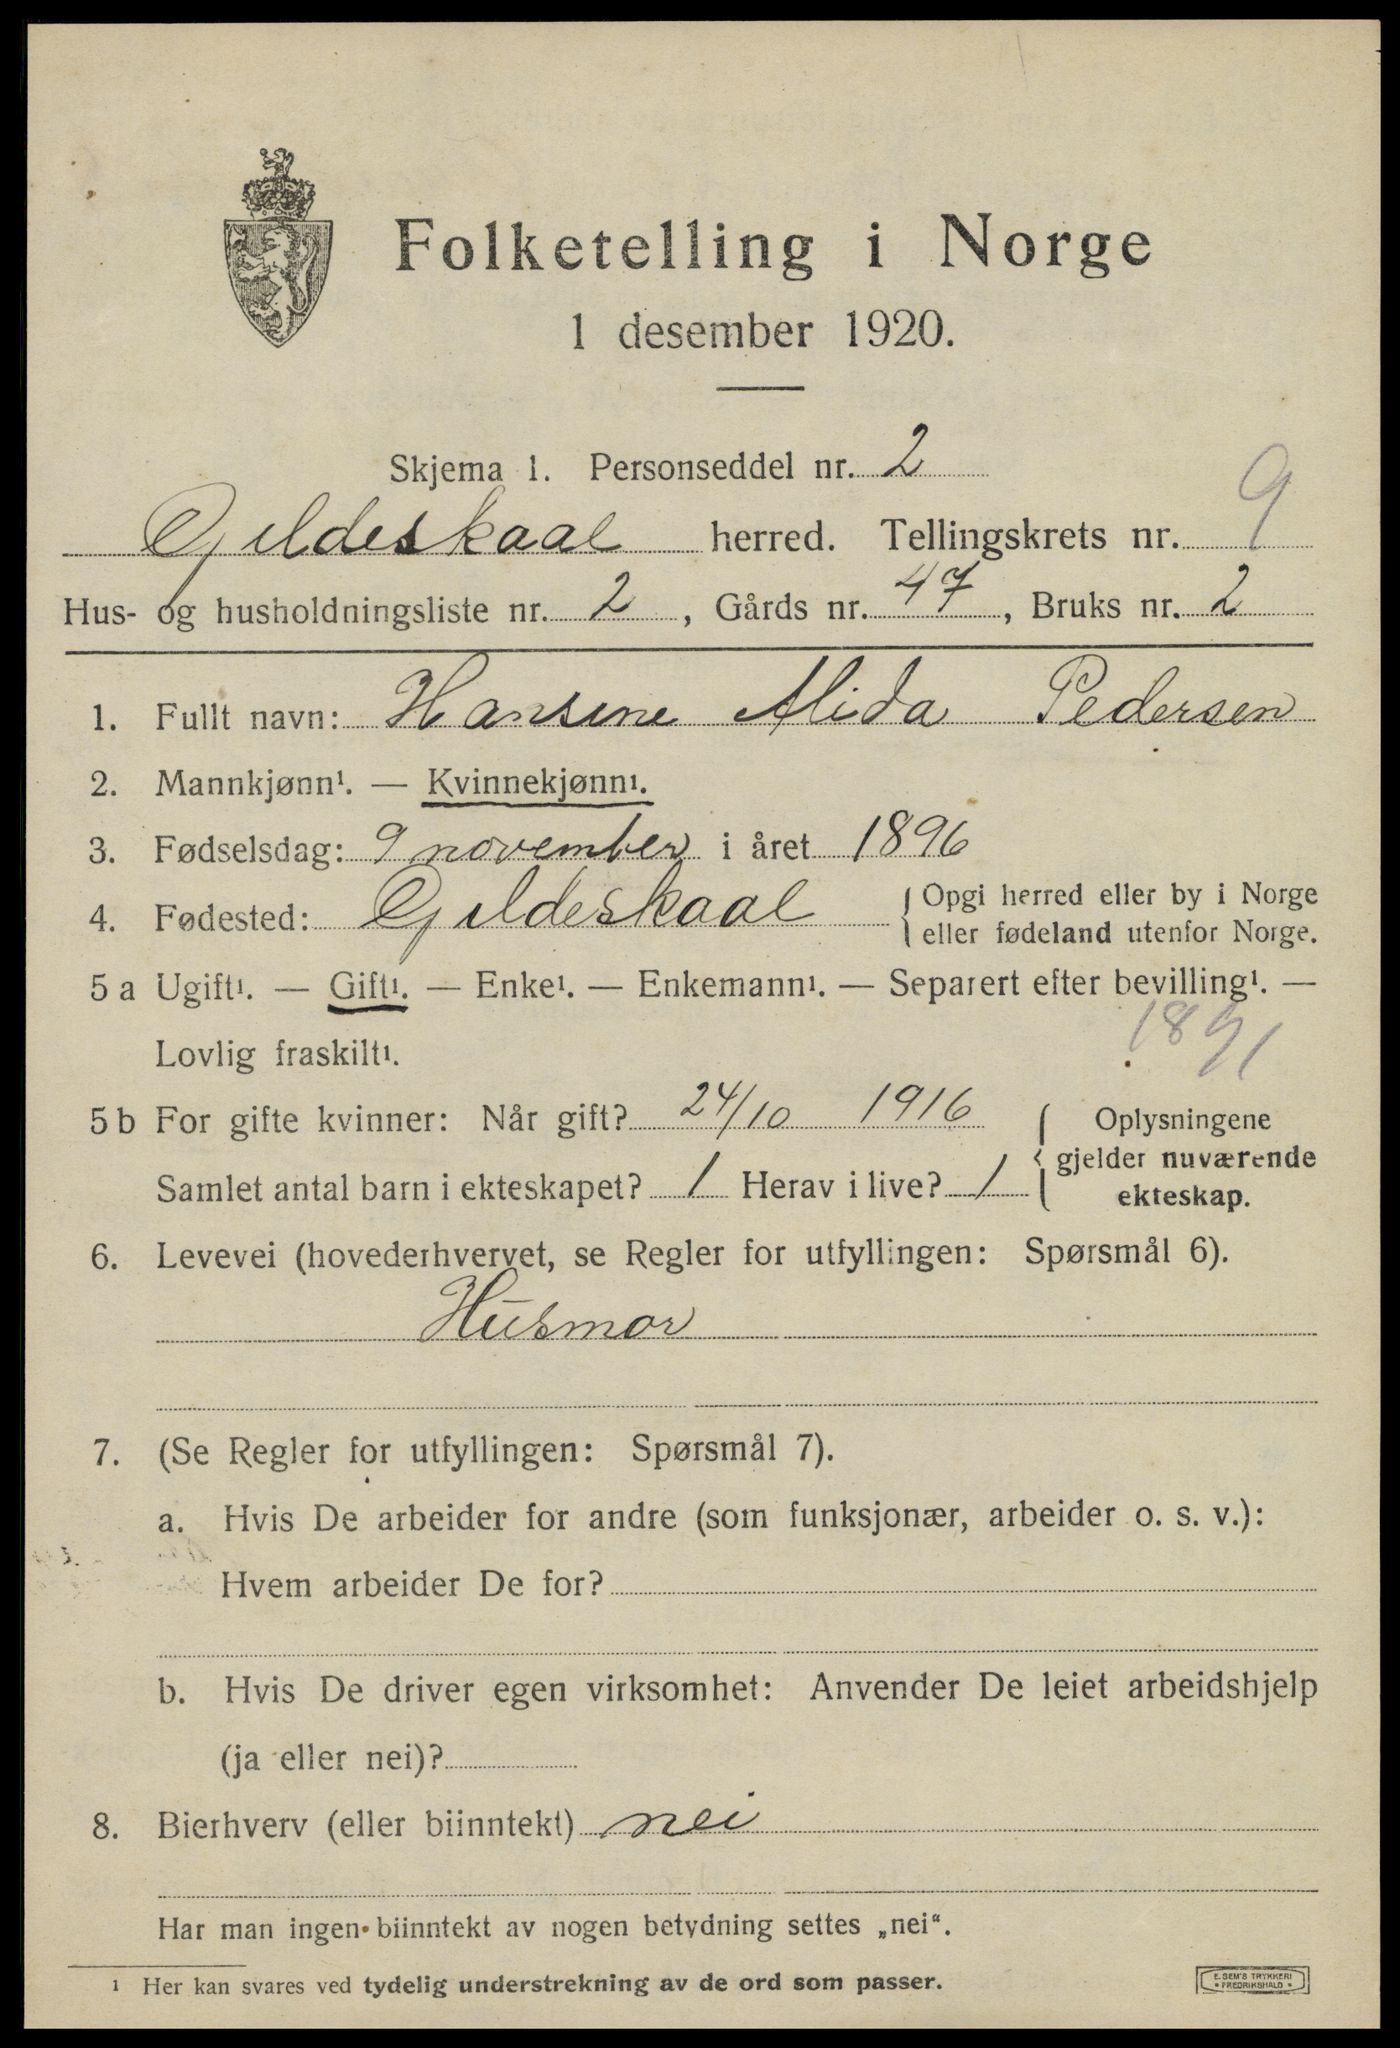 Folketelling i Norge
1 desember 1920.
Skjema 1. Personseddel nr. 2
Gjildeskaal herred. Tellingskrets nr. 9
Hus- og husholdningsliste nr. 2, Gårds nr. 47, Bruks nr. 2
1. Fullt navn: Hansine Alida Pedersen
2. Mannkjønn¹. — Kvinnekjønn¹.
3. Fødselsdag: 9 november i året 1896
4. Fødested: Gjildeskaal { Opgi herred eller by i Norge
eller fødeland utenfor Norge.
5 a Ugift¹. — Gift¹. — Enke¹. — Enkemann¹. — Separert efter bevilling¹. —
Lovlig fraskilt¹.
5 b For gifte kvinner: Når gift? 24/10 1916 { Oplysningene
gjelder nuværende
Samlet antal barn i ekteskapet? 1 Herav i live? 1
ekteskap.
6. Levevei (hovederhvervet, se Regler for utfyllingen: Spørsmål 6).
Husmor
7. (Se Regler for utfyllingen: Spørsmål 7).
a. Hvis De arbeider for andre (som funksjonær, arbeider o. s. v.):
Hvem arbeider De for?
b. Hvis De driver egen virksomhet: Anvender De leiet arbeidshjelp
(ja eller nei)?
8. Bierhverv (eller biinntekt) nei
Har man ingen biinntekt av nogen betydning settes „nei“.
¹ Her kan svares ved tydelig understrekning av de ord som passer.
E. SEM'S TRYKKERI
• FREDRIKSHALD •